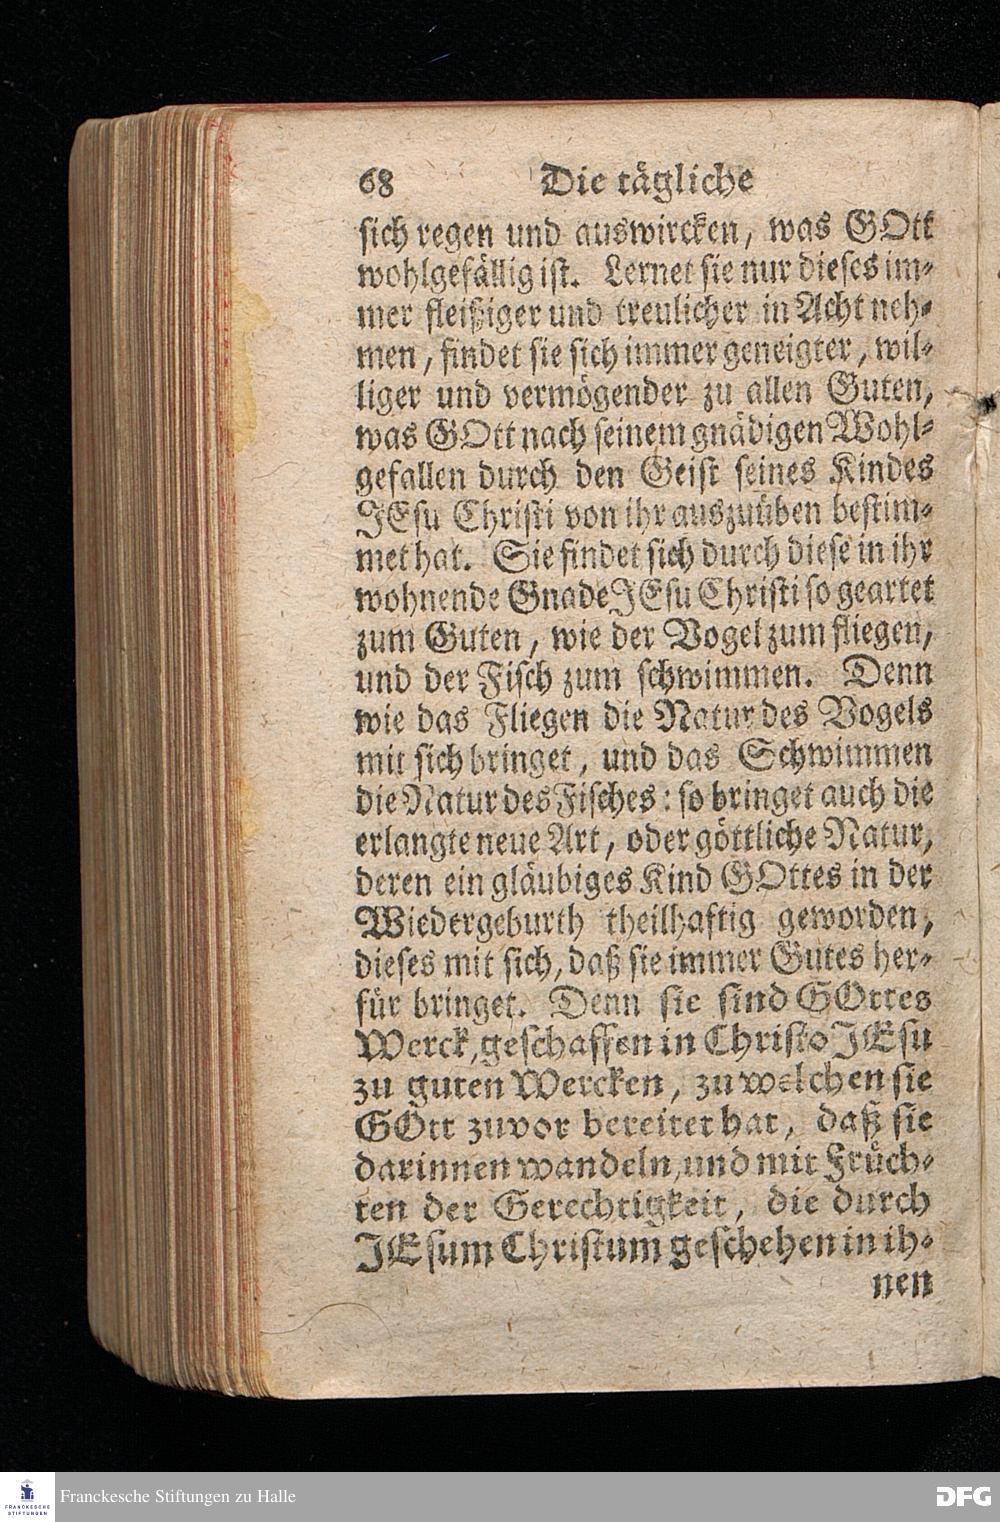 68 Die tägliche
sich regen und auswircken, was GOtt
wohlgefällig ist. Lernet sie nur dieses im-
mer fleißiger und treulicher in Acht neh-
men, findet sie sich immer geneigter, wil-
liger und vermögender zu allen Guten,
was GOtt nach seinem gnädigen Wohl-
gefallen durch den Geist seines Kindes
JEsu Christi von ihr auszuüben bestim-
met hat. Sie findet sich durch diese in ihr
wohnende Gnade JEsu Christi so geartet
zum Guten, wie der Vogel zum fliegen,
und der Fisch zum schwimmen. Denn
wie das Fliegen die Natur des Vogels
mit sich bringet, und das Schwimmen
die Natur des Fisches: so bringet auch die
erlangte neue Art, oder göttliche Natur,
deren ein gläubiges Kind GOttes in der
Wiedergeburth theilhaftig geworden,
dieses mit sich, daß sie immer Gutes her-
für bringet. Denn sie sind GOttes
Werck, geschaffen in Christo JEsu
zu guten Wercken, zu welchen sie
GOtt zuvor bereitet hat, daß sie
darinnen wandeln, und mit Früch-
ten der Gerechtigkeit, die durch
JEsum Christum geschehen in ih-
nen
FRANCKESCHE
STIFTUNGEN
Franckesche Stiftungen zu Halle
DFG